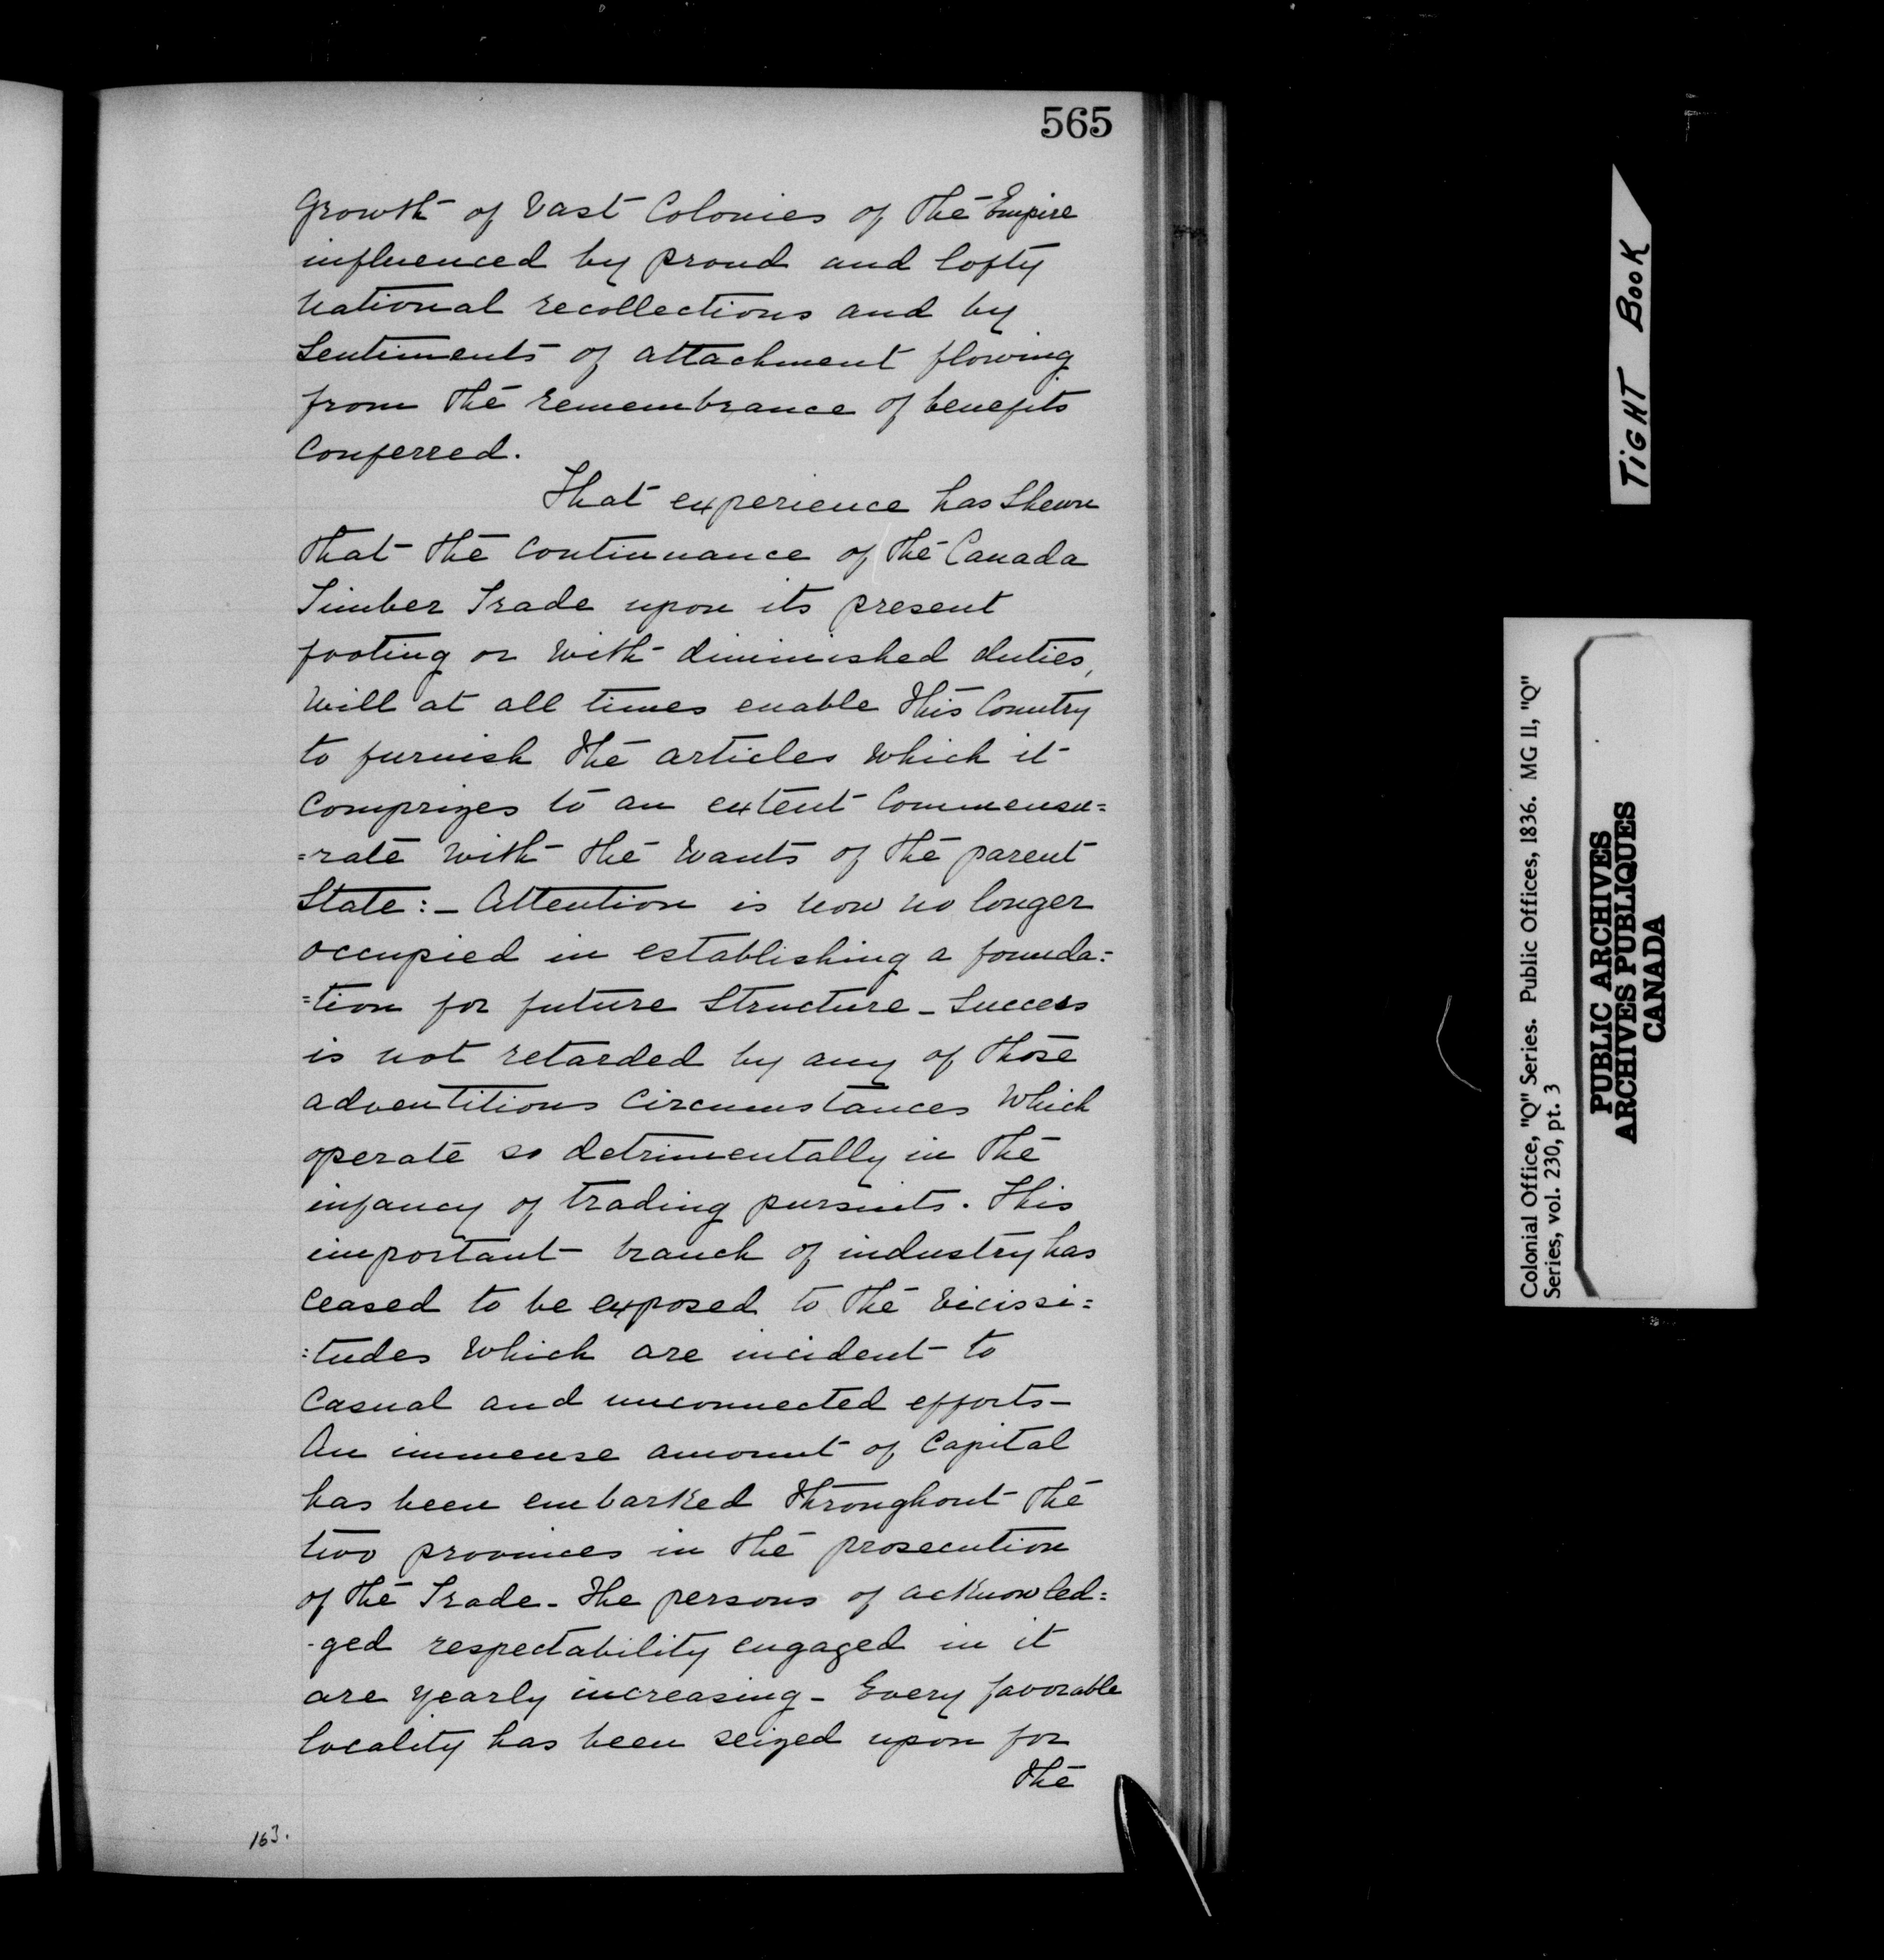 565
Growth of Vast Colonies of the Empire
influenced by proud and lofty
national recollections and by
Sentiments of attachment flowing
from the remembrance of benefits
Conferred.
That experience has Shewn
that the Continuance of the Canada
Timber Trade upon its present
footing or with diminished duties,
Will at all times enable this Country
to furnish the articles which it
Comprizes to an extent Commensu=
=rate with the Wants of the parent
State:- Attention is now no longer
occupied in establishing a founda=
=tion for future Structure - Success
is not retarded by any of those
adventitious Circumstances Which
operate so detrimentally in the
infancy of trading pursuits. This
important branch of industry has
Ceased to be exposed to the Vicissi=
=tudes Which are incident to
Casual and unconnected efforts -
An immense amount of Capital
has been embarked throughout the
two provinces in the prosecution
of the Trade - The persons of acknowled=
-ged respectability engaged in it
are yearly increasing - Every favorable
locality has been seized upon for
the
163.
TIGHT BOOK
Colonial Office, "Q" Series. Public Offices, 1836. MG 11, "Q"
Series, vol. 230, pt. 3
PUBLIC ARCHIVES
ARCHIVES PUBLIQUES
CANADA